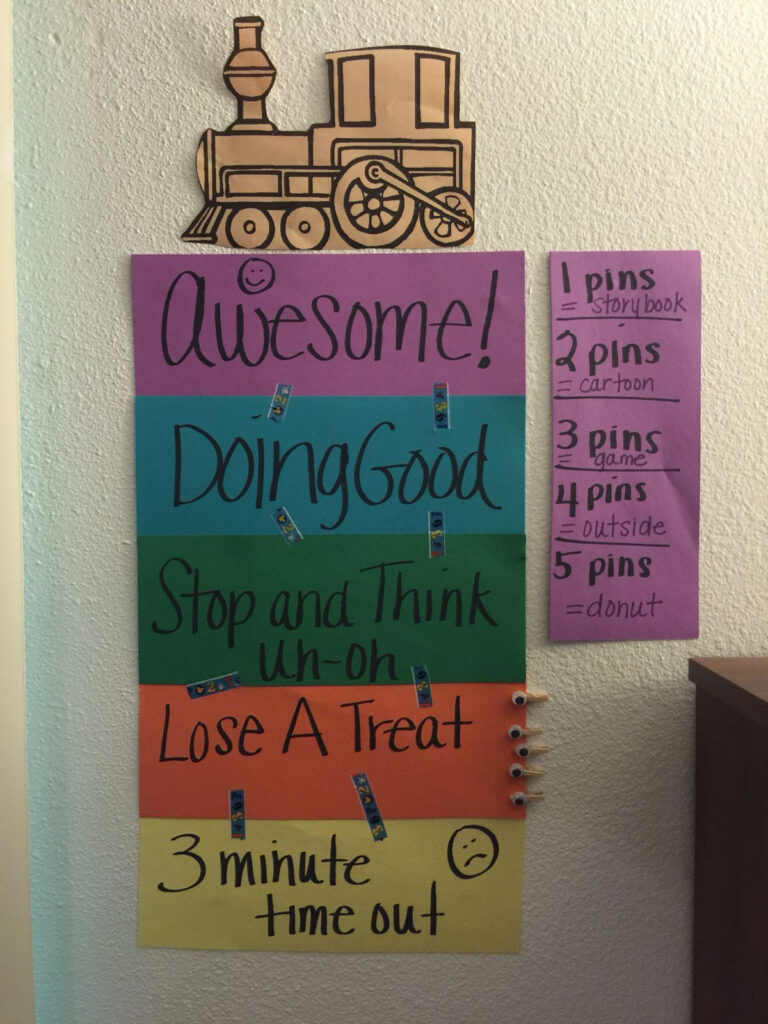 Awesome!
Doing Good
Stop and Think
Uh-oh
Lose A Treat
3 minute
time out
1 pins
= storybook
2 pins
= cartoon
3 pins
= game
4 pins
= outside
5 pins
= donut